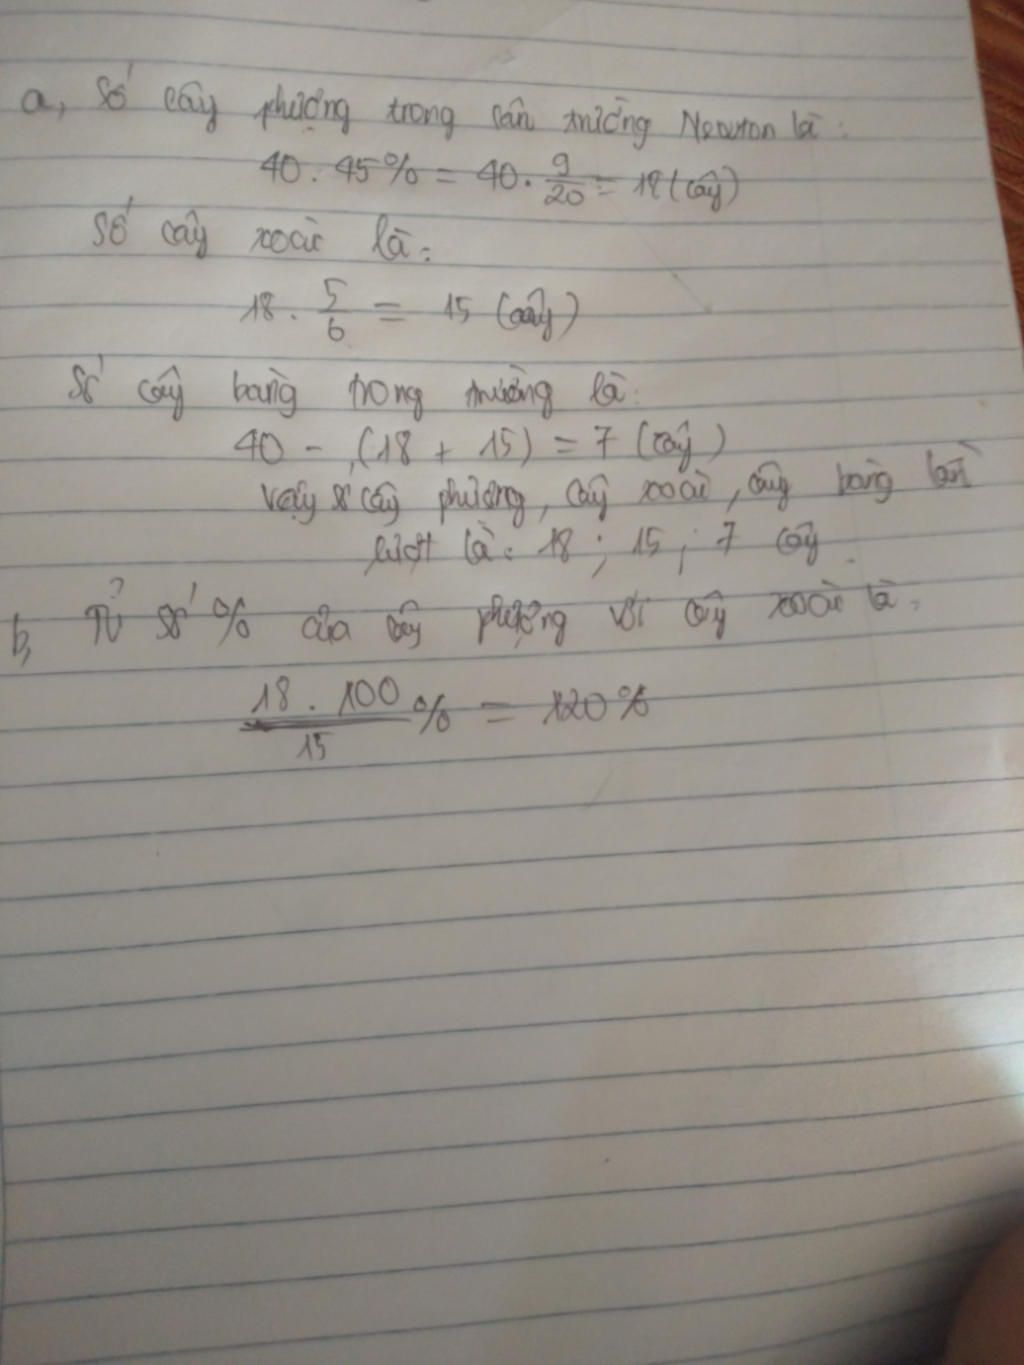 a, Số cây phượng trong sân trường Newton là:
40 . 45% = 40 . 9/20 = 18 (cây)
Số cây xoài là:
18 . 5/6 = 15 (cây)
Số cây bàng trong trường là:
40 - (18 + 15) = 7 (cây)
Vậy số cây phượng, cây xoài, cây bàng lần
lượt là: 18 ; 15 ; 7 cây
b, Tỉ số % của cây phượng với cây xoài là:
18 . 100/15 % = 120%